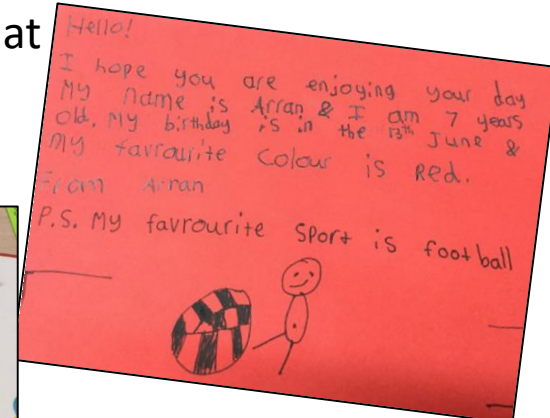 at
Hello!
I hope you are enjoying your day
My name is Arran & I am 7 years
old. My birthday is in the 13th June &
my favrourite colour is Red.
From Arran
P.S. My favrourite sport is football